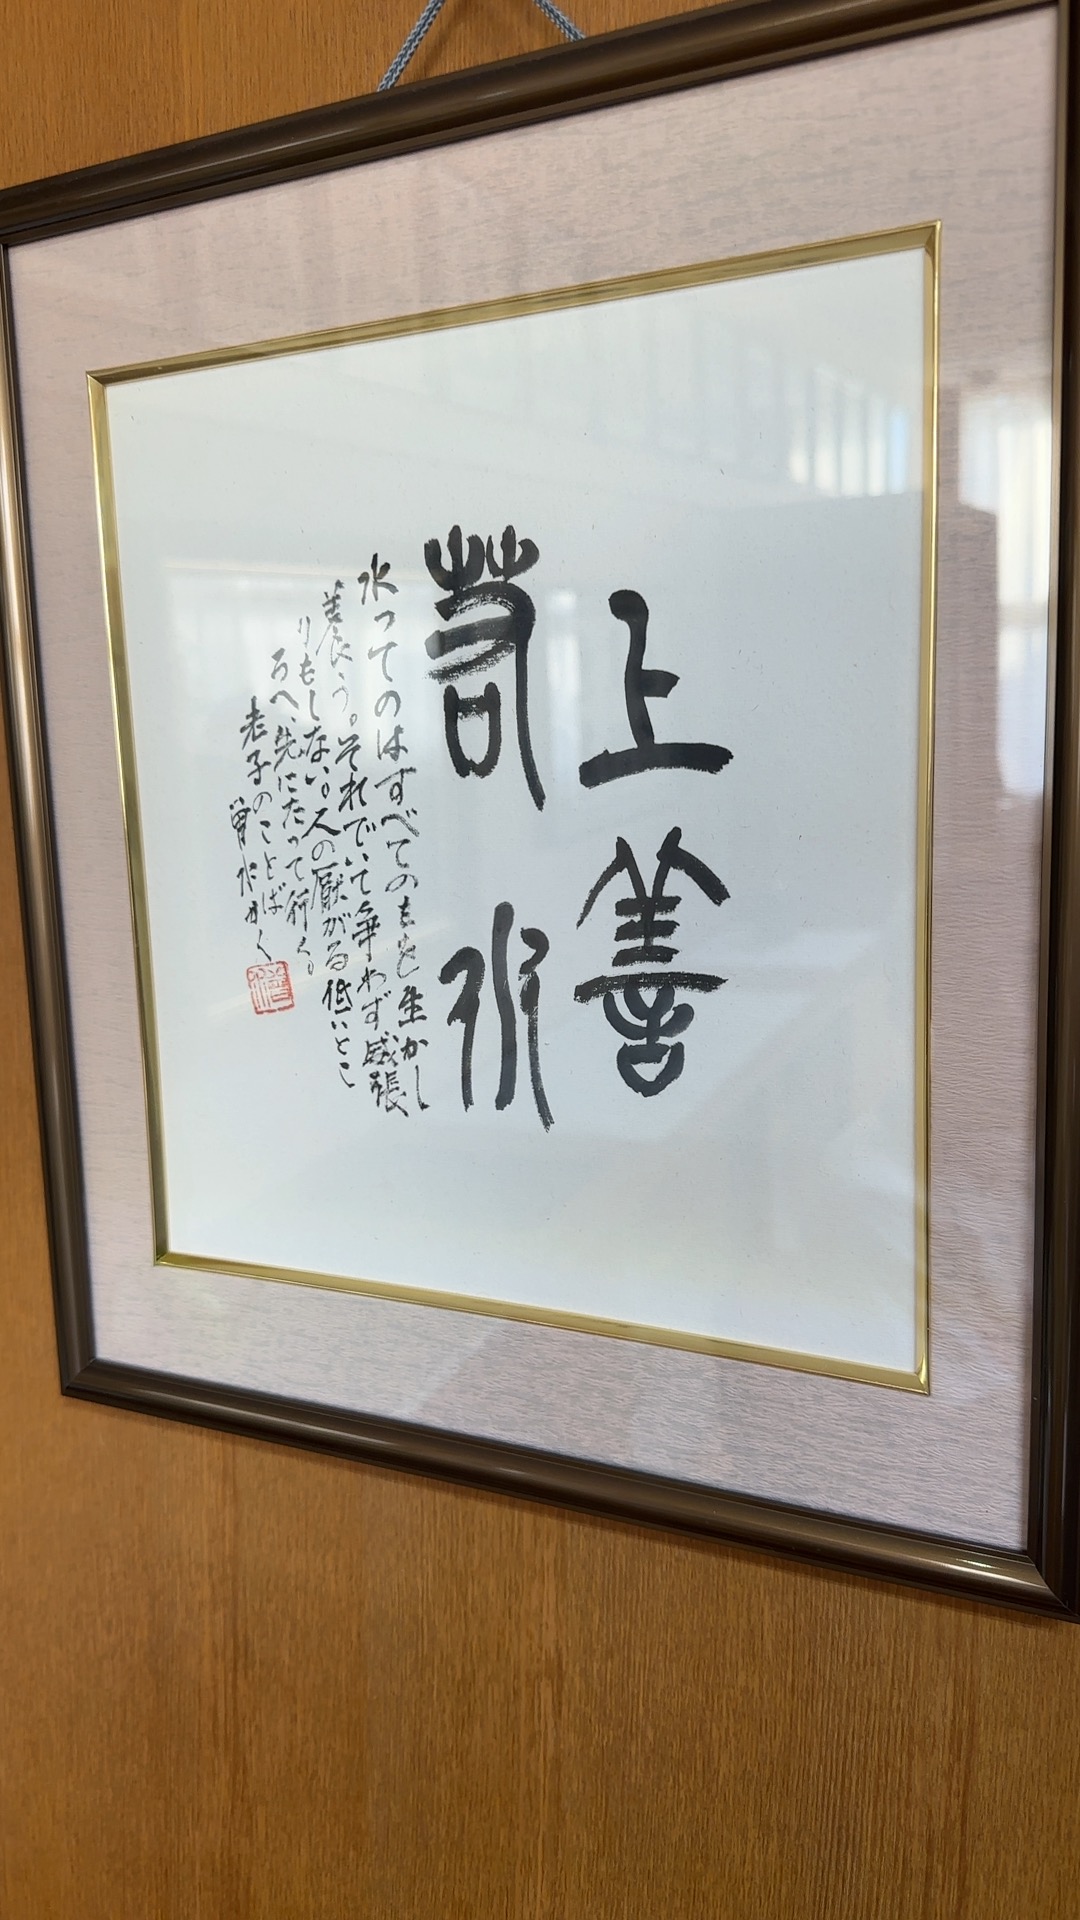 上善
若水
水ってのはすべてのもを生かし
養う。それでいて争わず威張
りもしない。人の厭がる低いとこ
ろへ、先にたって行く。
老子のことば